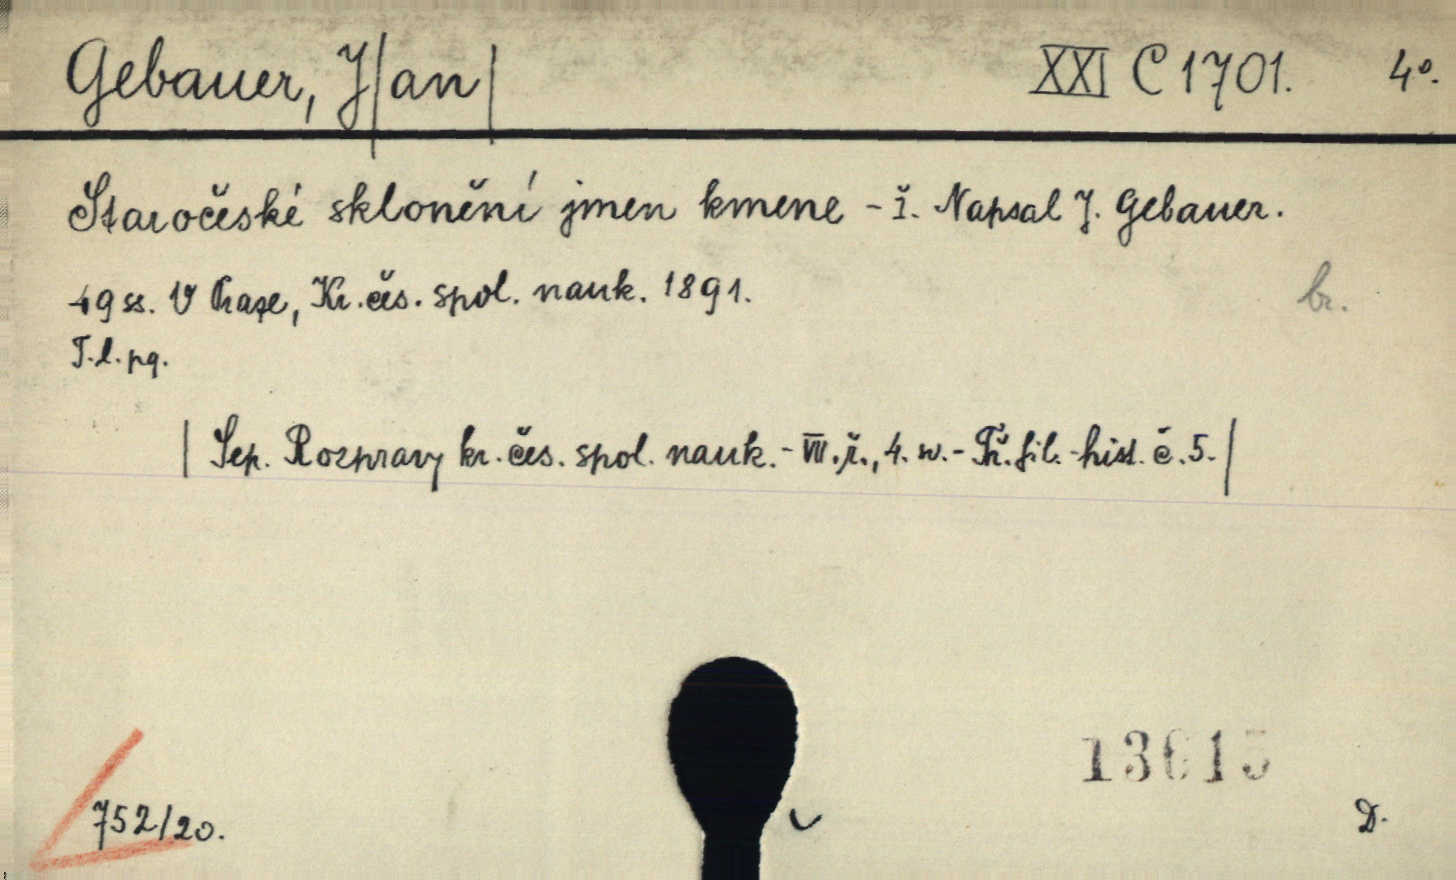 Gebauer, J|an| XXI C 1701. 4°.
Staročeské sklonění jmen kmene -i. Napsal J. Gebauer.
49 ss. V Praze, Kr. čes. spol. nauk. 1891. br.
T. l. pg.
| Sep. Rozpravy kr. čes. spol. nauk. - VII. ř., 4. sv. - Tř. fil.-hist. č. 5. |
13615
752/20. D.